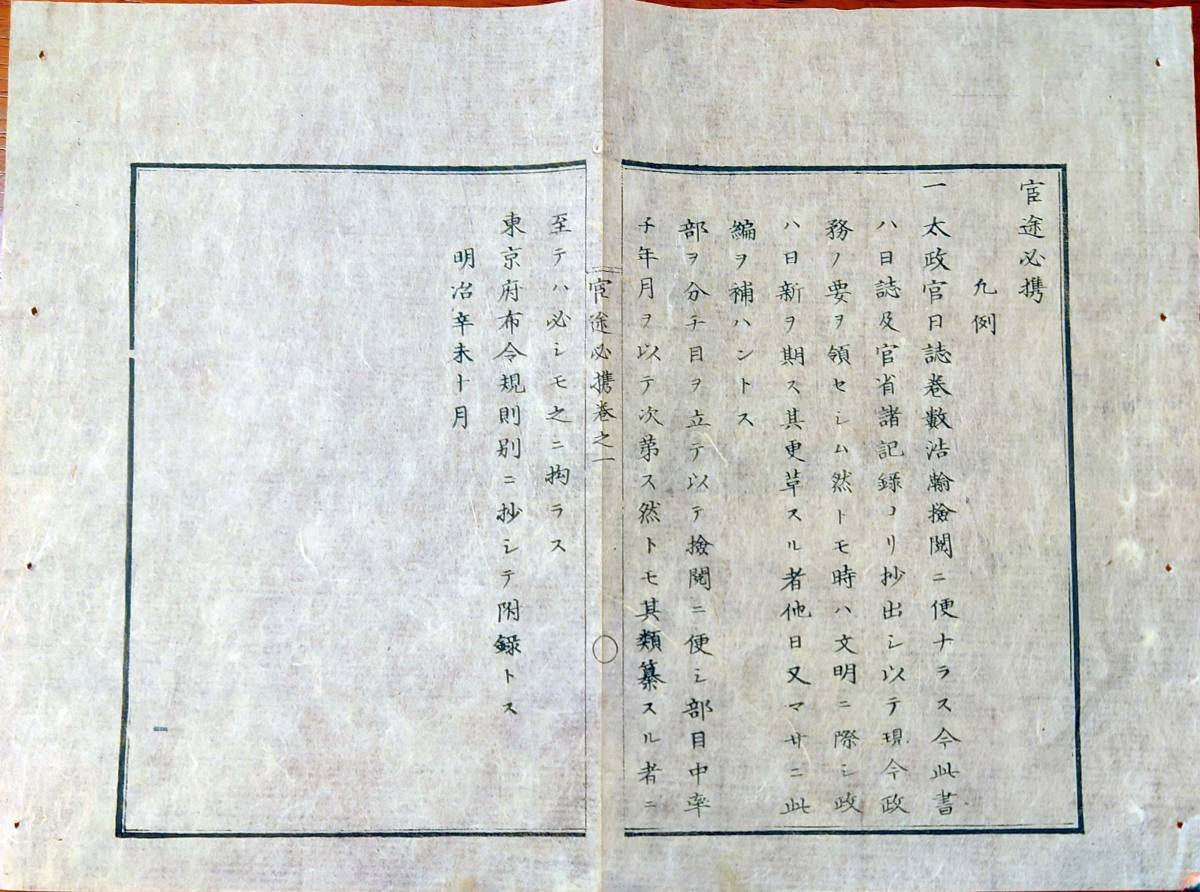 官途必携
凡例
一太政官日誌巻数浩瀚撿閲ニ便ナラス今此書
ハ日誌及官省諸記録ヨリ抄出シ以テ現今政
務ノ要ヲ領セシム然トモ時ハ文明ニ際シ政
ハ日新ヲ期ス其更革スル者他日又マサニ此
編ヲ補ハントス
部ヲ分チ目ヲ立テ以テ撿閲ニ便シ部目中率
子年月ヲ以テ次第ス然トモ其類纂スル者ニ
官途必携巻之一
至テハ必シモ之ニ拘ラス
東京府布令規則别ニ抄シテ附録トス
明治辛未十月